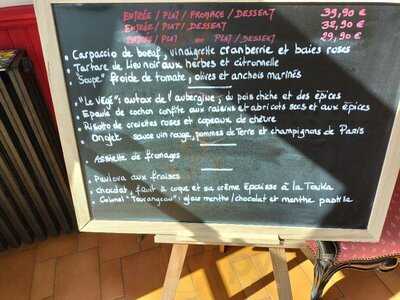 ENTRÉE / PLAT / FROMAGE / DESSERT 39,90 €
ENTRÉE / PLAT / DESSERT 32,90 €
ENTRÉE / PLAT ou PLAT / DESSERT 29,90 €
• Carpaccio de boeuf, vinaigrette cranberrie et baies roses
• Tartare de lieu noir aux herbes et citronnelle
• "Soupe" froide de tomate, olives et anchois marinés
• "Le Veuf": autour de l'aubergine, du pois chiche et des épices
• Epaule de cochon confite aux raisins et abricots secs et aux épices
• Risotto de crozets roses et copeaux de chèvre
• Onglet sauce vin rouge, pommes de terre et champignons de Paris
• Assiette de fromages
• Pavlova aux fraises
• Chocolat, fruit à coque et sa crème épaisse à la Tonka
• Colonel "Tourangeau": glace menthe/chocolat et menthe pastille